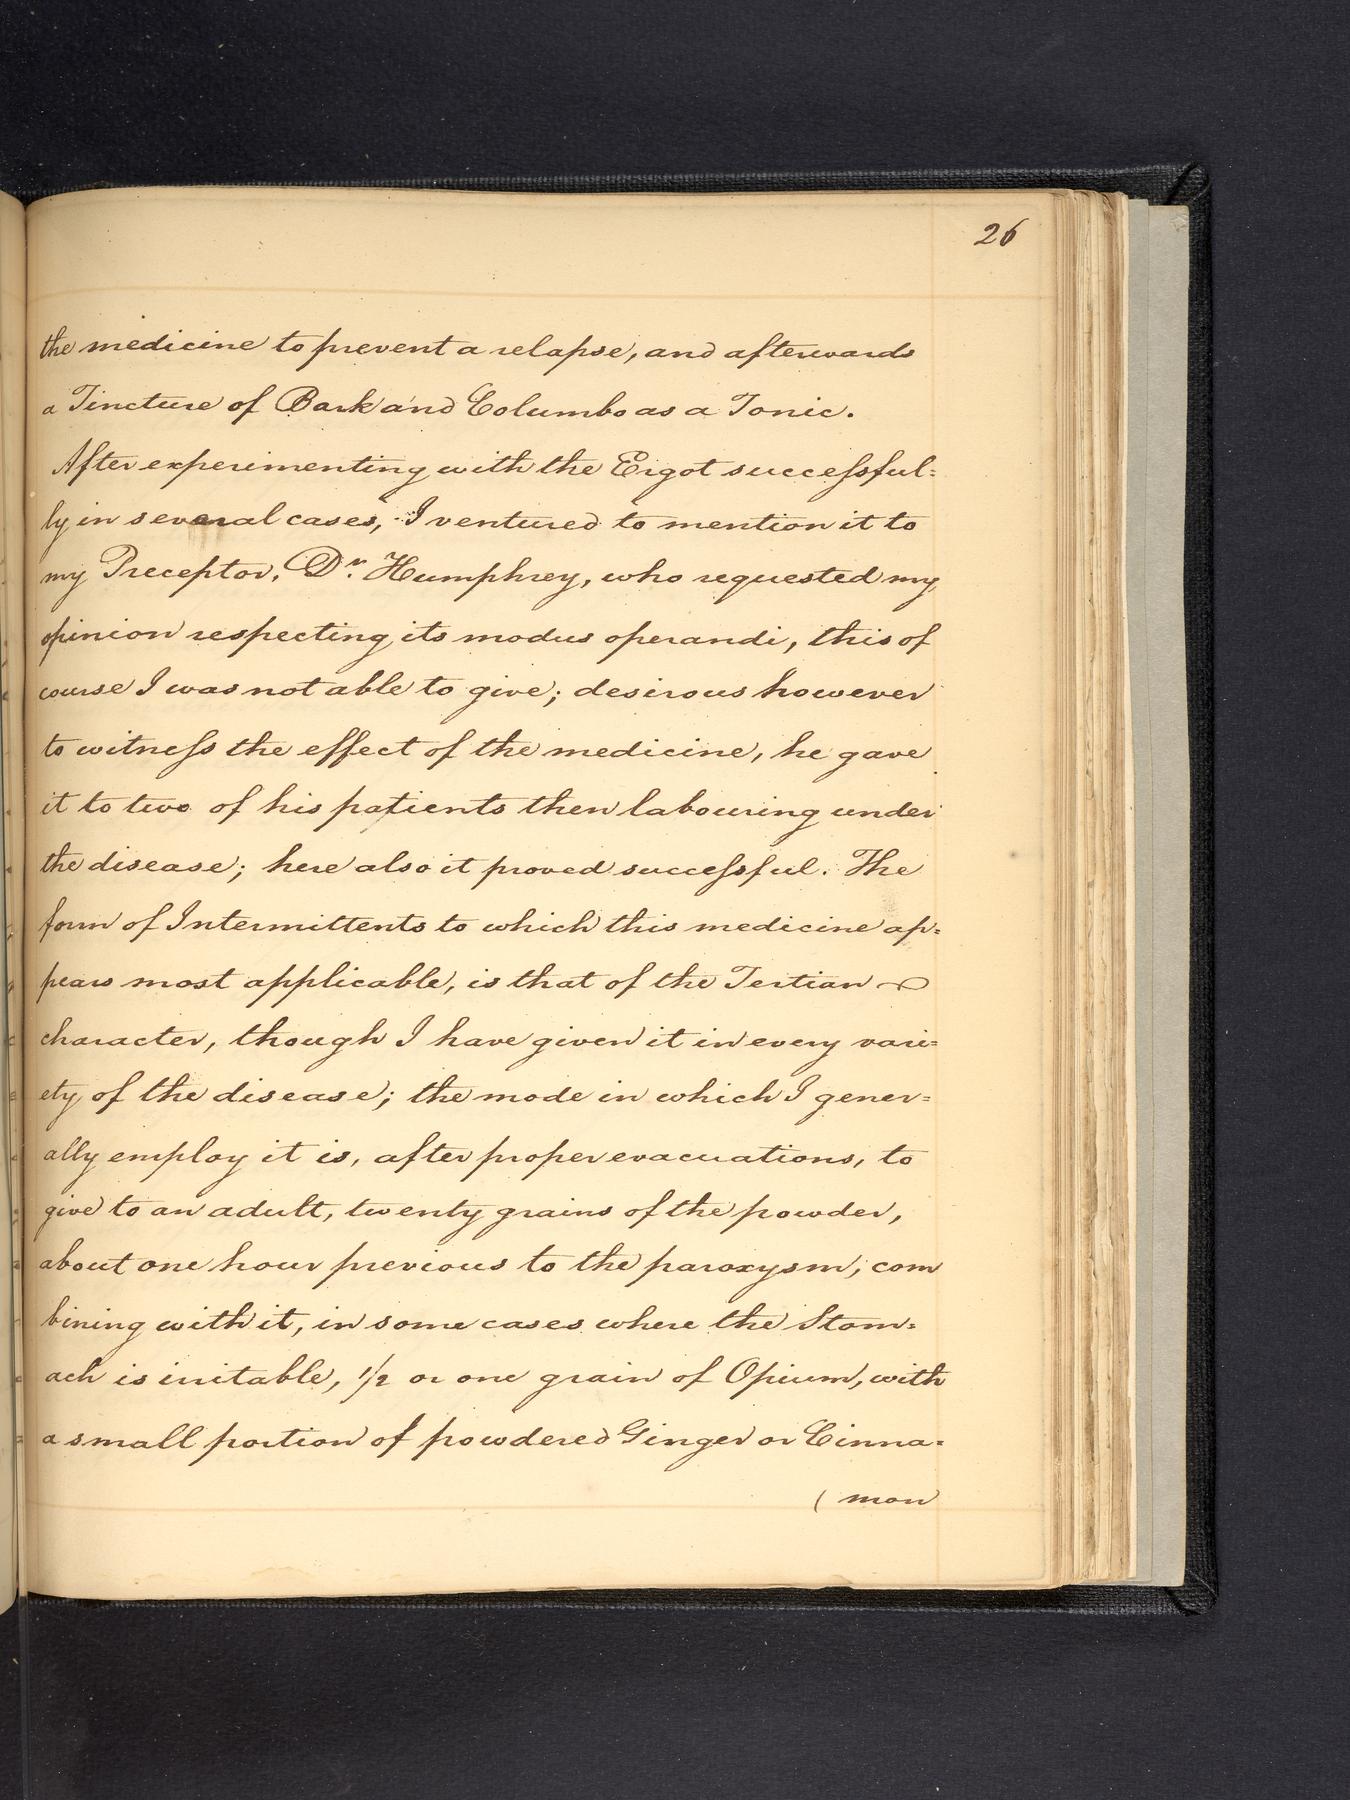 26
the medicine to prevent a relapse, and afterwards
a Tincture of Bark and Columbo as a Tonic.
After experimenting with the Ergot successful=
ly in several cases, I ventured to mention it to
my Preceptor, Dr. Humphrey, who requested my
opinion respecting its modus operandi, this of
course I was not able to give; desirous however
to witness the effect of the medicine, he gave
it to two of his patients then labouring under
the disease; here also it proved successful. The
form of Intermittents to which this medicine ap=
pears most applicable, is that of the Tertian
character, though I have given it in every vari=
ety of the disease; the mode in which I gener=
ally employ it is, after proper evacuations, to
give to an adult, twenty grains of the powder,
about one hour previous to the paroxysm; com
bining with it, in some cases where the Stom=
ach is irritable, 1/2 or one grain of Opium, with
a small portion of powdered Ginger or Cinna=
( mon